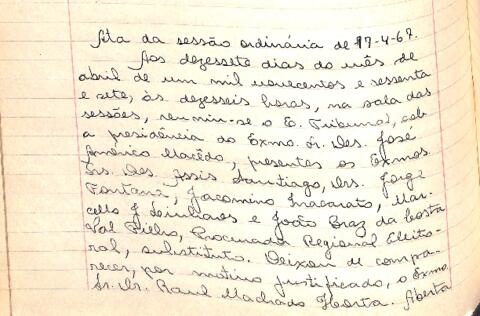 Ata da sessão ordinária de 17-4-67.
Aos dezessete dias do mês de
abril de um mil novecentos e sessenta
e sete, às dezesseis horas, na sala das
sessões, reuniu-se o E. Tribunal, sob
a presidência do Exmo. Sr. Des. José
Américo Macêdo, presentes os Exmos
Srs. Des. Assis Santiago, Drs. Jorge
Fontana, Jacomino Inacarato, Mar-
cello J. Linhares e João Braz da Costa
Val Filho, Procurador Regional Eleito-
ral, substituto. Deixou de compa-
recer, por motivo justificado, o Exmo
Sr. Dr. Raul Machado Horta. Aberta